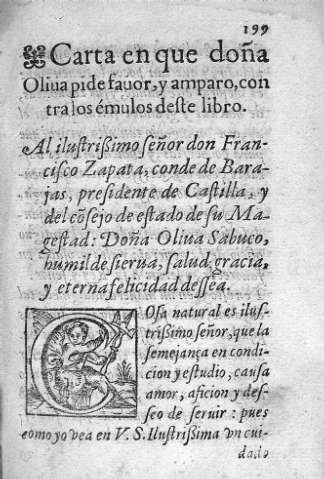 199
Carta en que doña
Oliua pide fauor, y amparo, con
tra los émulos deste libro.
Al ilustrißimo señor don Fran-
cisco Zapata, conde de Bara-
jas, presidente de Castilla, y
del cõsejo de estado de su Ma-
gestad: Doña Oliua Sabuco,
humil de sierua, salud, gracia,
y eterna felicidad dessea.
COsa natural es ilus-
trißimo señor, que la
semejança en condi-
cion y estudio, causa
amor, aficion y des-
seo de seruir: pues
como yo vea en V. S. Ilustrißima vn cui-
dado